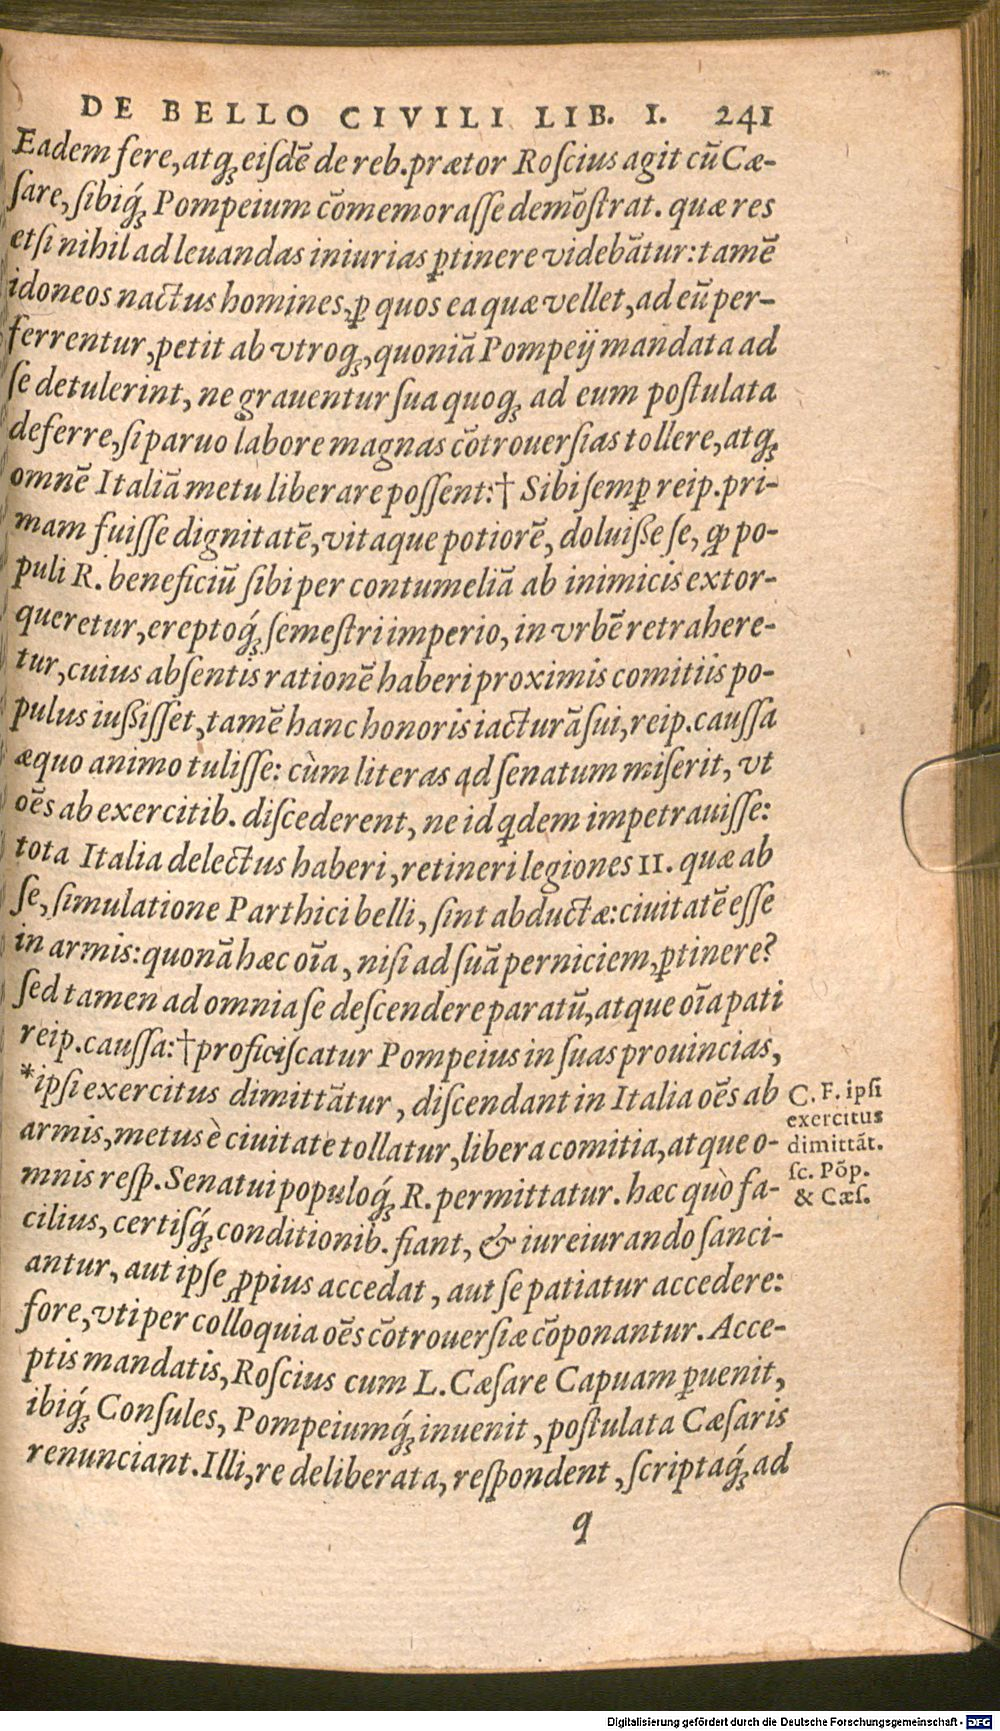 DE BELLO CIVILI LIB. I. 241
Eadem fere, atq́ꝫ eiſdē de reb. prætor Roſcius agit cū Cæ-
ſare, ſibiq́ꝫ Pompeium cōmemoraſſe demōſtrat. quæ res
etſi nihil ad leuandas iniurias ꝑtinere videbātur: tamē
idoneos nactus homines, ꝑ quos ea quæ vellet, ad eū per-
ferrentur, petit ab vtroqꝫ, quoniā Pompeij mandata ad
ſe detulerint, ne grauentur ſua quoqꝫ ad eum poſtulata
deferre, ſi paruo labore magnas cōtrouerſias tollere, atqꝫ
omnē Italiā metu liberare poſſent: † Sibi ſemꝑ reip. pri-
mam fuiſſe dignitatē, vitaque potiorē, doluiße ſe, ꝙ po-
puli R. beneficiū ſibi per contumeliā ab inimicis extor-
queretur, ereptoq́ꝫ ſemeſtri imperio, in vrbē retrahere-
tur, cuius abſentis rationē haberi proximis comitiis po-
pulus iußiſſet, tamē hanc honoris iacturā ſui, reip. cauſſa
æquo animo tuliſſe: cùm literas ad ſenatum miſerit, vt
oēs ab exercitib. diſcederent, ne id ꝗdem impetrauiſſe:
tota Italia delectus haberi, retineri legiones II. quæ ab
ſe, ſimulatione Parthici belli, ſint abductæ: ciuitatē eſſe
in armis: quonā hæc oīa, niſi ad ſuā perniciem, ꝑtinere?
ſed tamen ad omnia ſe deſcendere paratū, atque oīa pati
reip. cauſſa: † proficiſcatur Pompeius in ſuas prouincias,
*ipſi exercitus dimittātur, diſcendant in Italia oēs ab
armis, metus è ciuitate tollatur, libera comitia, atque o-
mnis reſp. Senatui populoq́ꝫ R. permittatur. hæc quò fa-
cilius, certiſq́ꝫ conditionib. fiant, & iureiurando ſanci-
antur, aut ipſe ꝓpius accedat, aut ſe patiatur accedere:
fore, vti per colloquia oēs cōtrouerſiæ cōponantur. Acce-
ptis mandatis, Roſcius cum L. Cæſare Capuam ꝑuenit,
ibiq́ꝫ Conſules, Pompeiumq́ꝫ inuenit, poſtulata Cæſaris
renunciant. Illi, re deliberata, reſpondent, ſcriptaq́ꝫ ad
q
C. F. ipſi
exercitus
dimittāt.
ſc. Pōp.
& Cæſ.
Digitalisierung gefördert durch die Deutsche Forschungsgemeinschaft - DFG